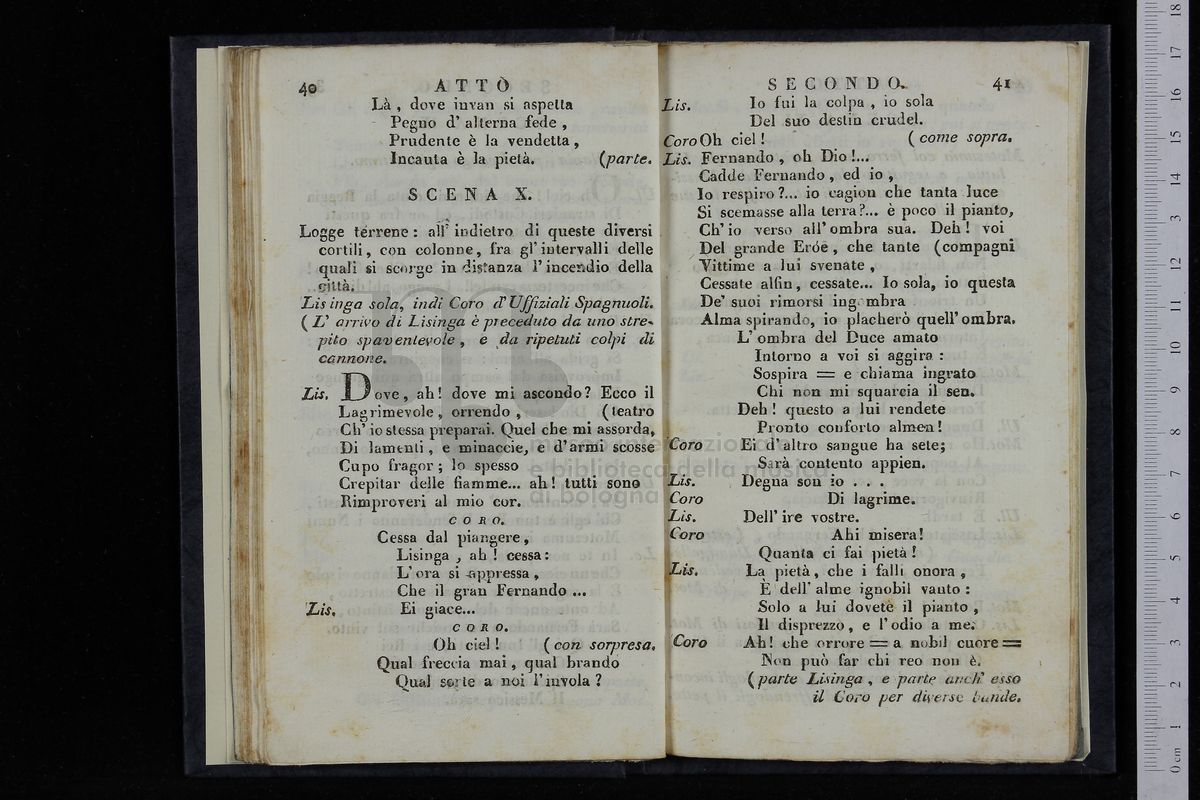 40 ATTO
Là , dove invan si aspetta
Pegno d' alterna fede ,
Prudente è la vendetta ,
Incauta è la pietà. (parte.
SCENA X.
Logge terrene : all' indietro di queste diversi
cortili, con colonne, fra gl' intervalli delle
quali si scorge in distanza l' incendio della
città.
Lisinga sola, indi Coro d' Uffiziali Spagnuoli.
( L' arrivo di Lisinga è preceduto da uno stre-
pito spaventevole , e da ripetuti colpi di
cannone.
Lis. Dove, ah! dove mi ascondo? Ecco il
Lagrimevole, orrendo , (teatro
Ch' io stessa preparai. Quel che mi assorda,
Di lamenti, e minaccie, e d' armi scosse
Cupo fragor ; lo spesso
Crepitar delle fiamme... ah! tutti sono
Rimproveri al mio cor.
CORO.
Cessa dal piangere,
Lisinga , ah ! cessa:
L' ora si appressa ,
Che il gran Fernando ...
Lis. Ei giace...
CORO.
Oh ciel ! ( con sorpresa.
Qual freccia mai, qual brando
Qual sorte a noi l' invola ?
SECONDO. 41
Lis. Io fui la colpa , io sola
Del suo destin crudel.
Coro Oh ciel ! ( come sopra.
Lis. Fernando , oh Dio !...
Cadde Fernando, ed io ,
Io respiro ?... io cagion che tanta luce
Si scemasse alla terra ?... è poco il pianto,
Ch' io verso all' ombra sua. Deh ! voi
Del grande Eròe, che tante (compagni
Vittime a lui svenate ,
Cessate alfin, cessate... Io sola, io questa
De' suoi rimorsi ingombra
Alma spirando, io placherò quell' ombra.
L' ombra del Duce amato
Intorno a voi si aggira :
Sospira = e chiama ingrato
Chi non mi squarcia il sen.
Deh ! questo a lui rendete
Pronto conforto almen !
Coro Ei d' altro sangue ha sete;
Sarà contento appien.
Lis. Degna son io . . .
Coro Di lagrime.
Lis. Dell' ire vostre.
Coro Ahi misera!
Quanta ci fai pietà !
Lis. La pietà, che i falli onora ,
È dell' alme ignobil vanto :
Solo a lui dovete il pianto ,
Il disprezzo, e l' odio a me.
Coro Ah! che orrore = a nobil cuore =
Non può far chi reo non è.
( parte Lisinga , e parte anch' esso
il Coro per diverse bande.
museo internazionale
e biblioteca della musica
di bologna